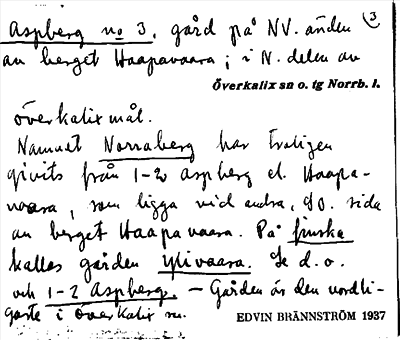 Aspberg no 3, gård på NV. änden 3
av berget Haapavaara; i N. delen av
Överkalix sn o. tg Norrb. l.
överkalixmål.
Namnet Norraberg har troligen
givits från 1-2 Aspberg el. Haapa-
vaara, som ligga vid andra, SO. sida
av berget Haapavaara. På finska
kallas gården Ylivaara. Se d.o.
och 1-2 Aspberg. — Gården är den nordli-
gaste i Överkalix sn.
EDVIN BRÄNNSTRÖM 1937